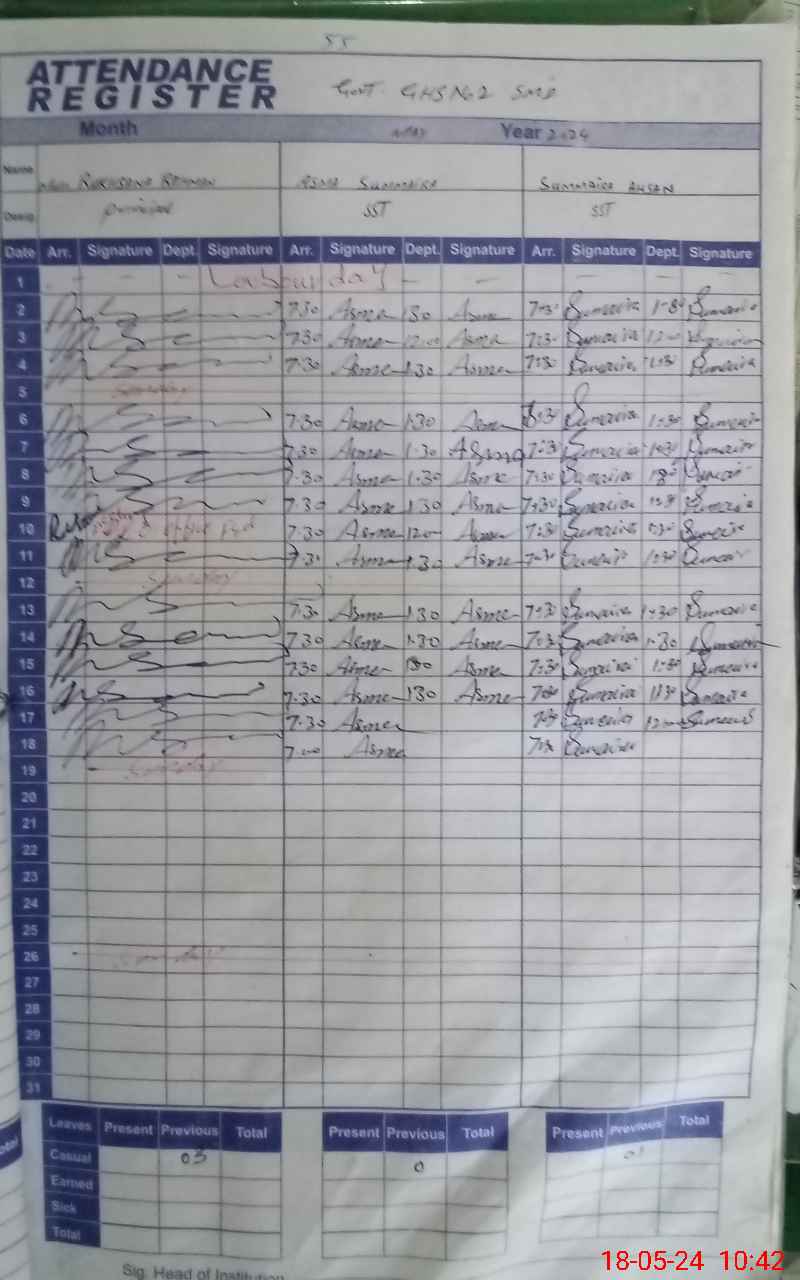 55
ATTENDANCE
REGISTER
Govt. GHS No 2
Month May Year 2024
Name Rukhsana Rehman Asma Summaira Summaira Ahsan
Desig Principal SST SST
Date Arr. Signature Dept. Signature Arr. Signature Dept. Signature Arr. Signature Dept. Signature
1 - - - Labour day - - - -
2 7.30 Asma 1.30 Asma 7:30 Sumaira Sumaira
3 7.30 Asma 12.00 Asma 7:30 Sumaira 12.00
4 7.30 Asma 1.30 Asma 7:30 Sumaira 1:30 Sumaira
5 Sunday
6 7.30 Asma 1.30 Asma Sumaira 1:30 Sumaira
7 7.30 Asma 1.30 Asma 7:30 Sumaira 1:30 Sumaira
8 7.30 Asma 1.30 Asma 7:30 Sumaira Sumaira
9 7.30 Asma 1.30 Asma 7:30 Sumaira Sumaira
10 7.30 Asma 12.00 Asma 7:30 Sumaira Sumaira
11 7.30 Asma 1.30 Asma 7:30 Sumaira 1:30 Sumaira
12 Sunday
13 7.30 Asma 1.30 Asma 7:30 Sumaira 1:30 Sumaira
14 7.30 Asma 1.30 Asma 7:30 Sumaira 1:30 Sumaira
15 7.30 Asma 1.30 Asma 7:30 Sumaira 1:30 Sumaira
16 7.30 Asma 1.30 Asma 7:30 Sumaira 1:30 Sumaira
17 7.30 Asma 7:30 Sumaira 12.00 Sumaira
18 7.00 Asma 7:30 Sumaira
19 Sunday
20
21
22
23
24
25
26 Sunday
27
28
29
30
31
Leaves Present Previous Total Present Previous Total Present Previous Total
Casual 03 0 01
Earned
Sick
Total
Sig. Head of Institution
18-05-24 10:42